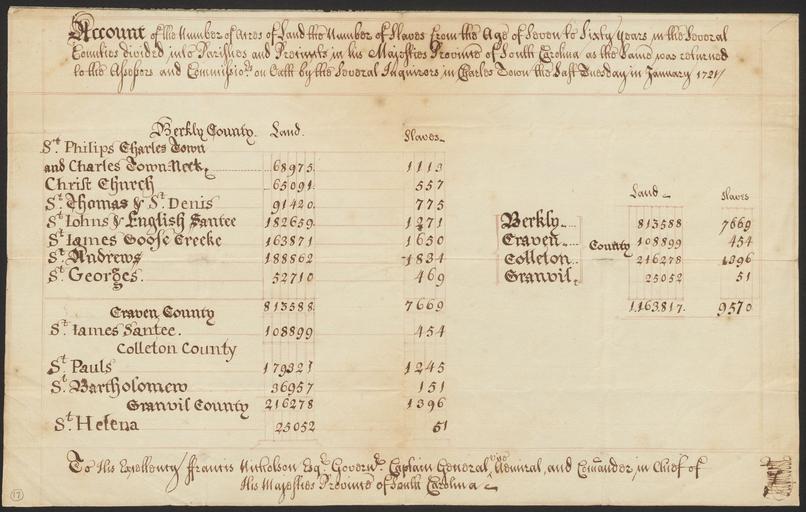 Account of the Number of Acres of Land the Number of Slaves from the Age of Seven to Sixty years in the Several
Counties divided into Parishes and Precincts in his Majesties Province of South Carolina as the Same was returned
to the Assessors and Commissio.rs on Oath by the Several Inquirors in Charles Town the Last Tuesday in January 1721/
Berkly County. Land. Slaves
St Philips Charles Town
and Charles Town Neck 68975 1113
Christ Church 65091 557
St Thomas & St Denis 91420 775
St Iohns & English Santee 182659 1271
St Iames Goose Creeke 163871 1650
St Andrews 188862 1834
St Georges. 52710 469
813588 7669
Craven County
St Iames Santee. 108899 454
Colleton County
St Pauls 179321 1245
St Bartholomew 36957 151
216278 1396
Granvil County
St Helena 25052 51
Land Slaves
Berkly 813588 7669
Craven 108899 454
County
Colleton 216278 1396
Granvil 25052 51
1,163,817 9570
To His Excellency ffrancis Nicholson Esqr. Governr. Captain General, vice Admiral, and Comander in Chief of
His Majesties Province of South Carolina
17